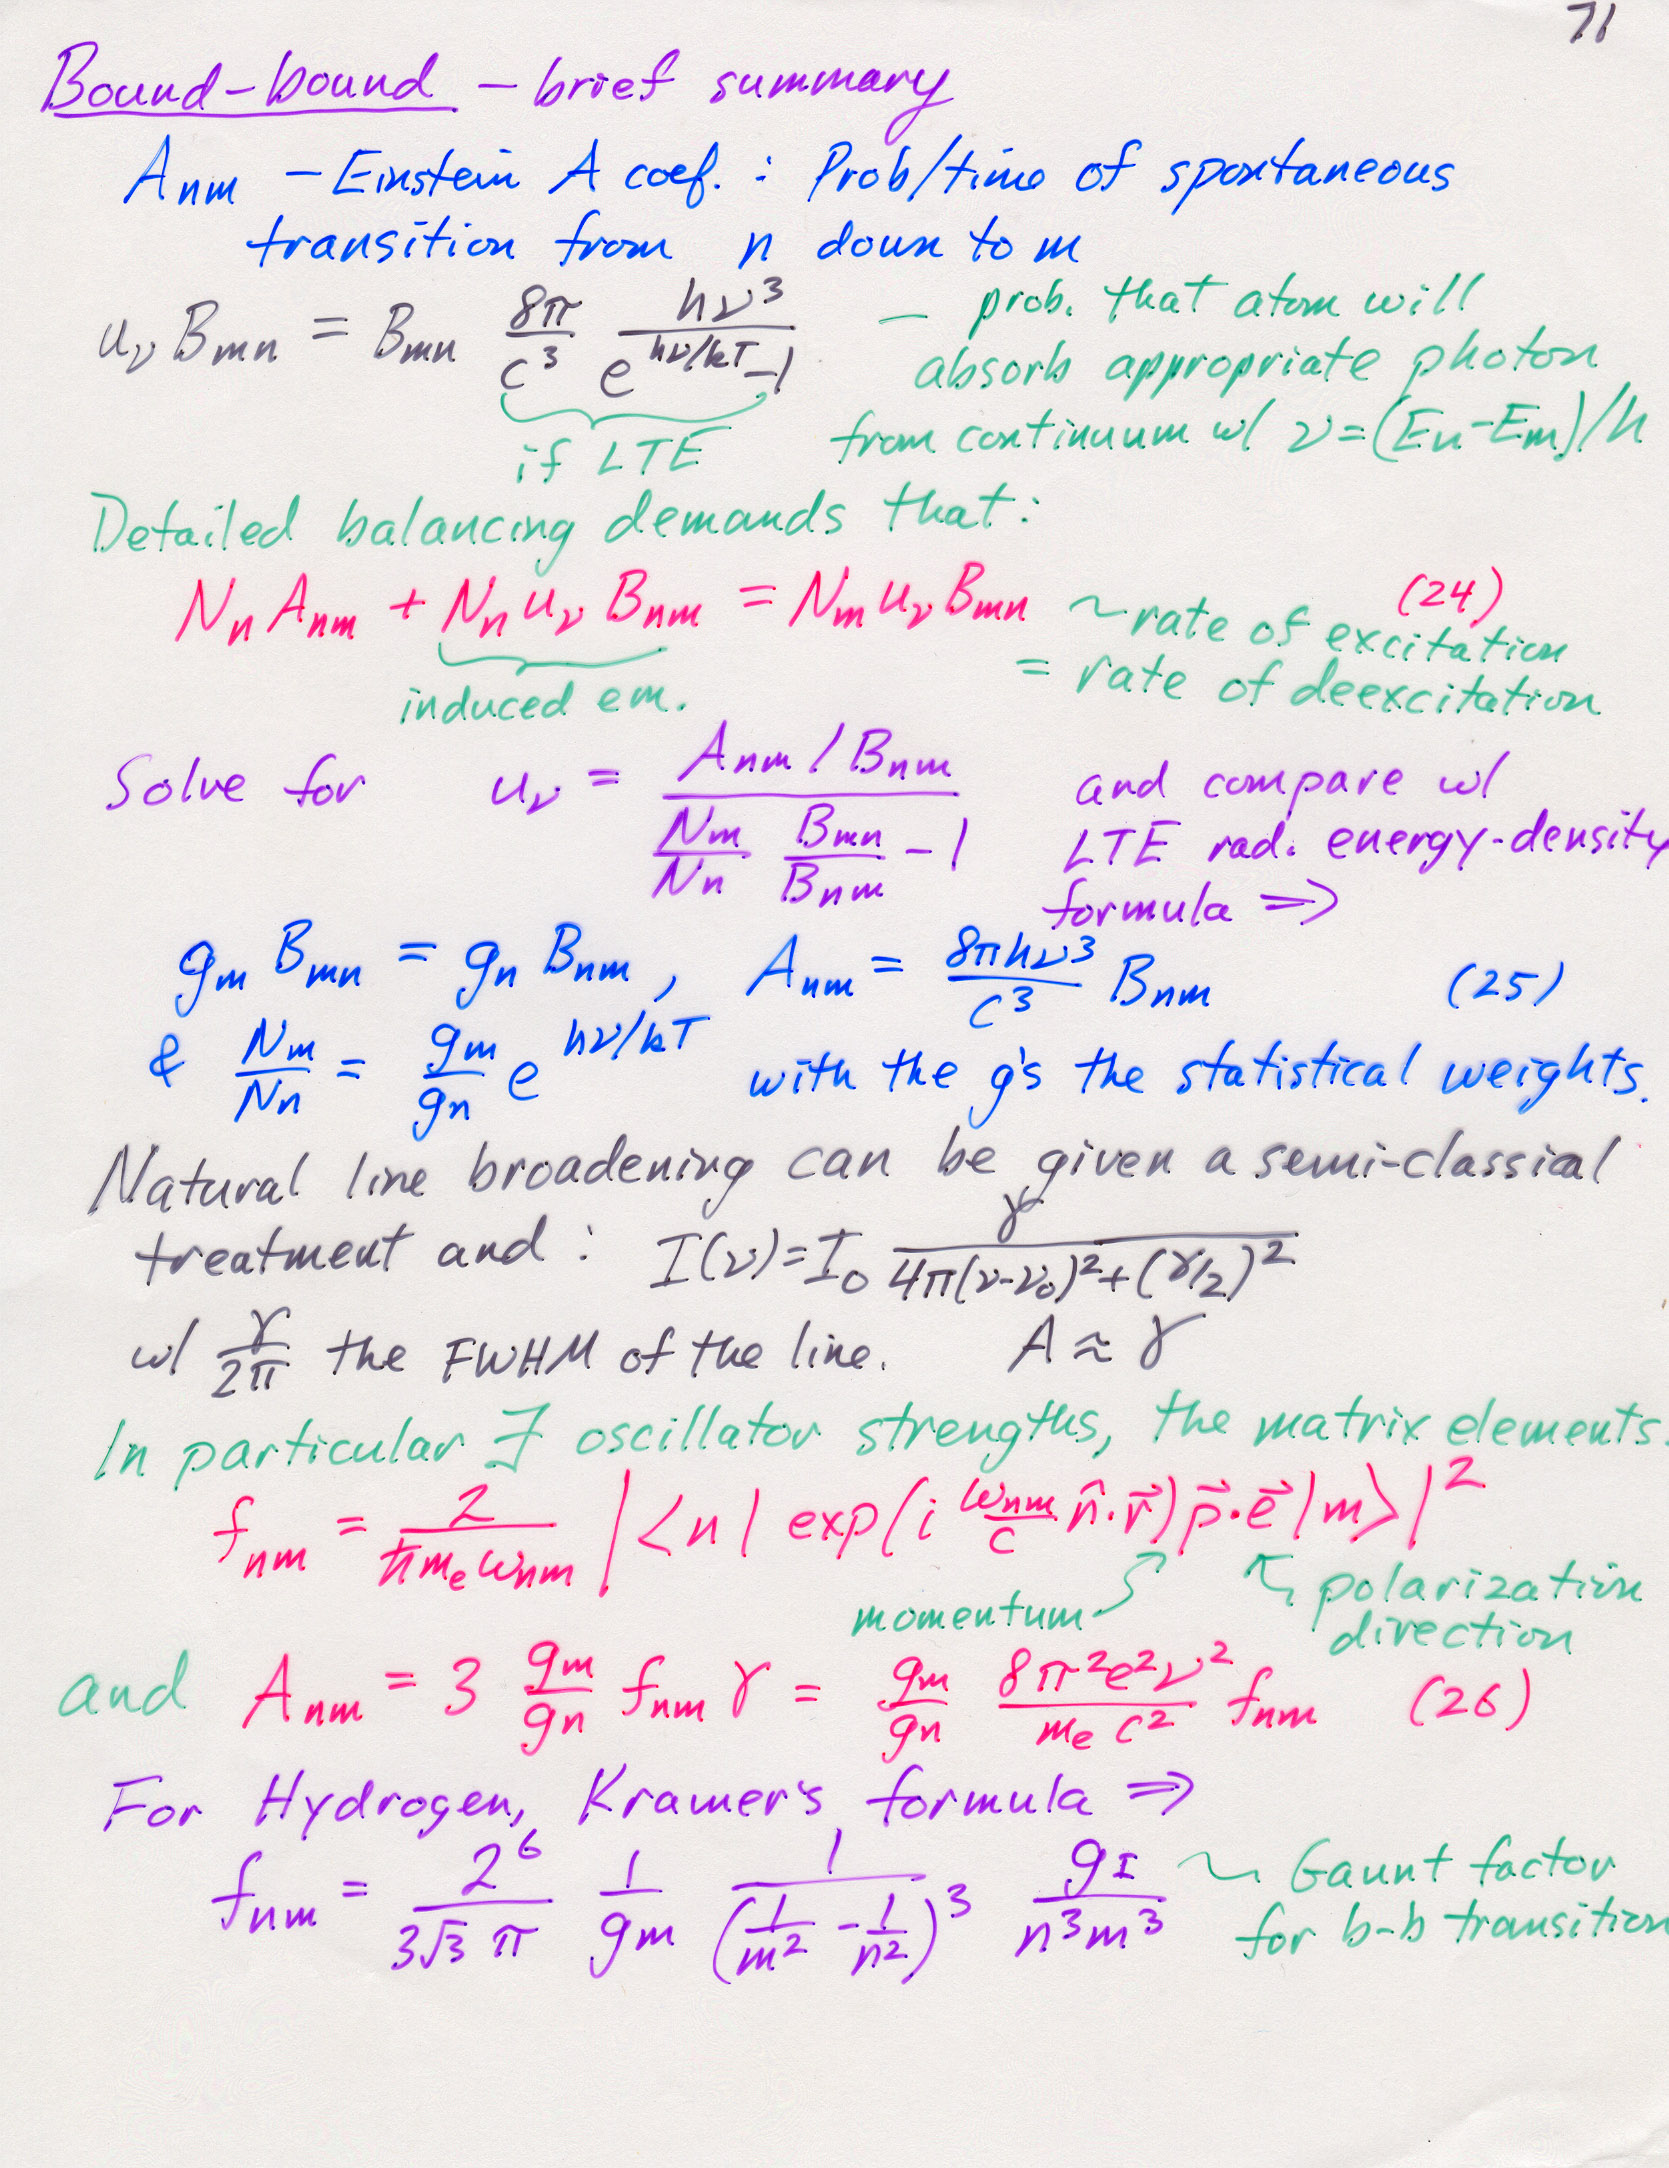 71
Bound-bound - brief summary
A_nm - Einstein A coef. : Prob/time of spontaneous
transition from n down to m
u_ν B_mn = B_mn 8π/c³ hν³/(e^(hν/kT) - 1) — prob. that atom will
absorb appropriate photon
if LTE from continuum w/ ν = (E_n - E_m)/h
Detailed balancing demands that:
N_n A_nm + N_n u_ν B_nm = N_m u_ν B_mn (24)
~ rate of excitation
= rate of deexcitation
induced em.
Solve for u_ν = (A_nm / B_nm) / (N_m/N_n B_mn/B_nm - 1) and compare w/
LTE rad. energy-density
formula ⇒
g_m B_mn = g_n B_nm , A_nm = 8πhν³/c³ B_nm (25)
& N_m/N_n = g_m/g_n e^(hν/kT) with the g's the statistical weights.
Natural line broadening can be given a semi-classial
treatment and : I(ν) = I_0 γ/(4π(ν-ν_0)² + (γ/2)²)
w/ γ/2π the FWHM of the line. A ≈ γ
In particular ∃ oscillator strengths, the matrix elements.
f_nm = 2/(ħ m_e ω_nm) |<n| exp(i ω_nm/c n̂·r⃗) p⃗·e⃗ |m>|²
momentum polarization
direction
and A_nm = 3 g_m/g_n f_nm γ = g_m/g_n 8π²e²ν²/(m_e c²) f_nm (26)
For Hydrogen, Kramer's formula ⇒
f_nm = 2⁶/(3√3 π) 1/g_m 1/(1/m² - 1/n²)³ g_I/(n³m³) ~ Gaunt factor
for b-b transition